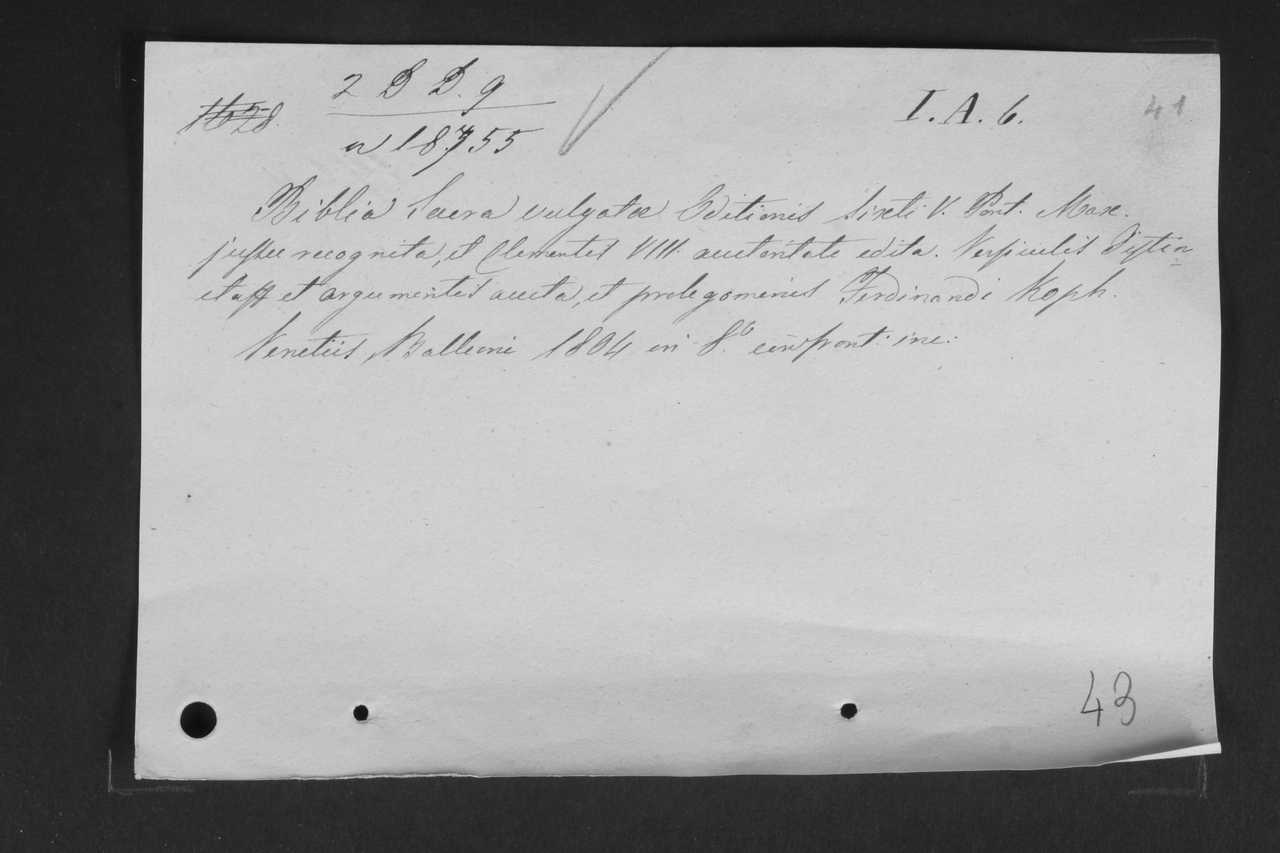 1628.
2 D D. 9
n 18755
I. A. 6.
41
Biblia Sacra vulgatae Editionis Sixti V. Pont. Max.
jussu recognita, et Clementis VIII. auctoritate edita. Versiculis Distin
et argumentis aucta, et prolegomenis Ferdinandi Koph.
Venetiis, Balleoni 1804 in 8.º con front. inc.
43